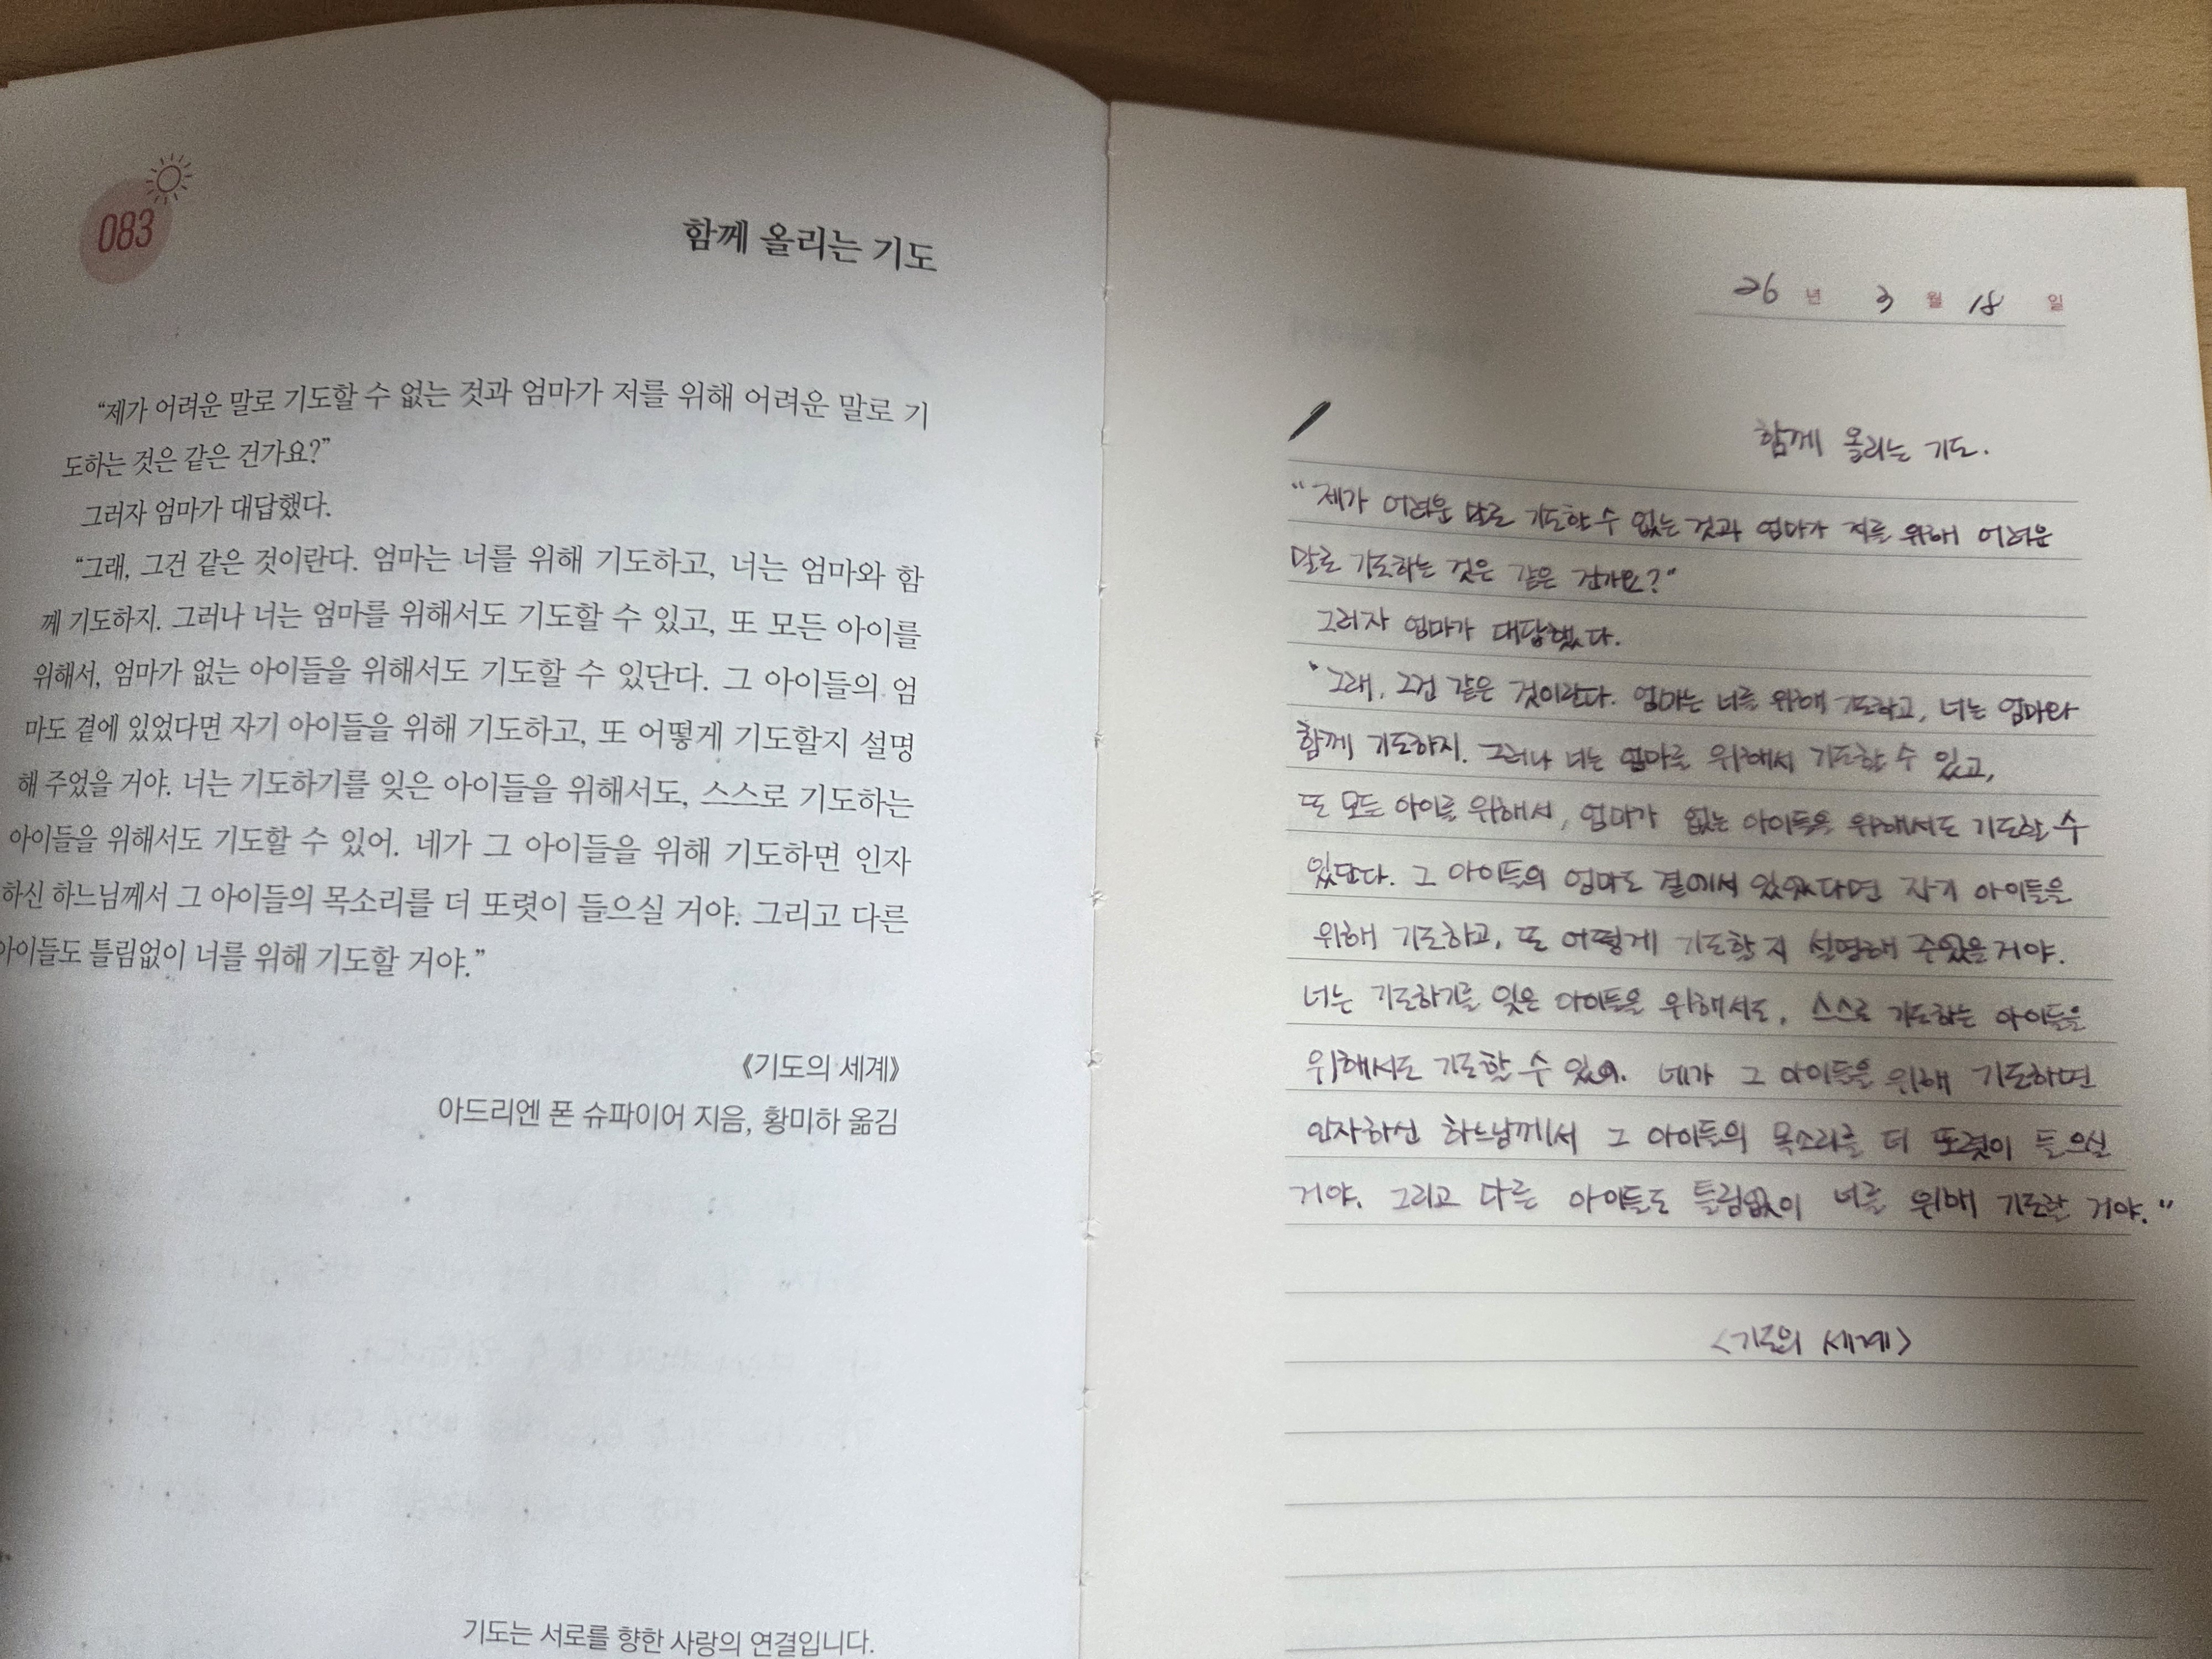 083
함께 올리는 기도
“제가 어려운 말로 기도할 수 없는 것과 엄마가 저를 위해 어려운 말로 기
도하는 것은 같은 건가요?”
그러자 엄마가 대답했다.
“그래, 그건 같은 것이란다. 엄마는 너를 위해 기도하고, 너는 엄마와 함
께 기도하지. 그러나 너는 엄마를 위해서도 기도할 수 있고, 또 모든 아이를
위해서, 엄마가 없는 아이들을 위해서도 기도할 수 있단다. 그 아이들의 엄
마도 곁에 있었다면 자기 아이들을 위해 기도하고, 또 어떻게 기도할지 설명
해 주었을 거야. 너는 기도하기를 잊은 아이들을 위해서도, 스스로 기도하는
아이들을 위해서도 기도할 수 있어. 네가 그 아이들을 위해 기도하면 인자
하신 하느님께서 그 아이들의 목소리를 더 또렷이 들으실 거야. 그리고 다른
아이들도 틀림없이 너를 위해 기도할 거야.”
《기도의 세계》
아드리엔 폰 슈파이어 지음, 황미하 옮김
기도는 서로를 향한 사랑의 연결입니다.
26 년 3 월 18 일
함께 올리는 기도.
“제가 어려운 말로 기도할 수 없는 것과 엄마가 저를 위해 어려운
말로 기도하는 것은 같은 건가요?”
그러자 엄마가 대답했다.
‘그래, 그건 같은 것이란다. 엄마는 너를 위해 기도하고, 너는 엄마와
함께 기도하지. 그러나 너는 엄마를 위해서 기도할 수 있고,
또 모든 아이를 위해서, 엄마가 없는 아이들을 위해서도 기도할 수
있단다. 그 아이들의 엄마도 곁에서 있었다면 자기 아이들을
위해 기도하고, 또 어떻게 기도할지 설명해 주었을 거야.
너는 기도하기를 잊은 아이들을 위해서도, 스스로 기도하는 아이들을
위해서도 기도할 수 있어. 네가 그 아이들을 위해 기도하면
인자하신 하느님께서 그 아이들의 목소리를 더 또렷이 들으실
거야. 그리고 다른 아이들도 틀림없이 너를 위해 기도할 거야.”
<기도의 세계>